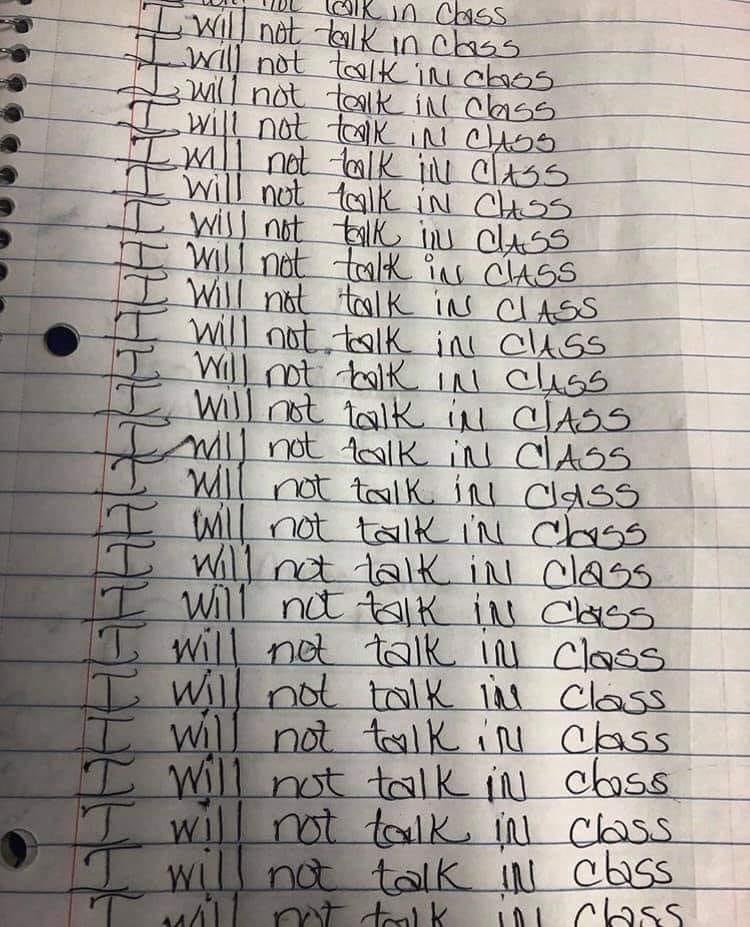 will not talk in Class
I will not talk in class
I will not talk iN class
I will not talk iN Class
I will not talk iN CLASS
I will not talk iN ClASS
I will not talk iN ClASS
I will not talk iN ClASS
I Will not talk iN ClASS
I Will not talk iN ClASS
I Will not talk iN ClASS
I Will not talk iN ClASS
I Will not talk iN ClASS
I will not talk iN ClASS
I will not talk iN ClASS
I will not talk iN Class
I will not talk iN Class
I will not talk iN Class
I will not talk iN Class
I will not talk iN Class
I will not talk iN Class
I will not talk iN Class
I will not talk iN Class
I will not talk iN Class
I will not talk iN Class